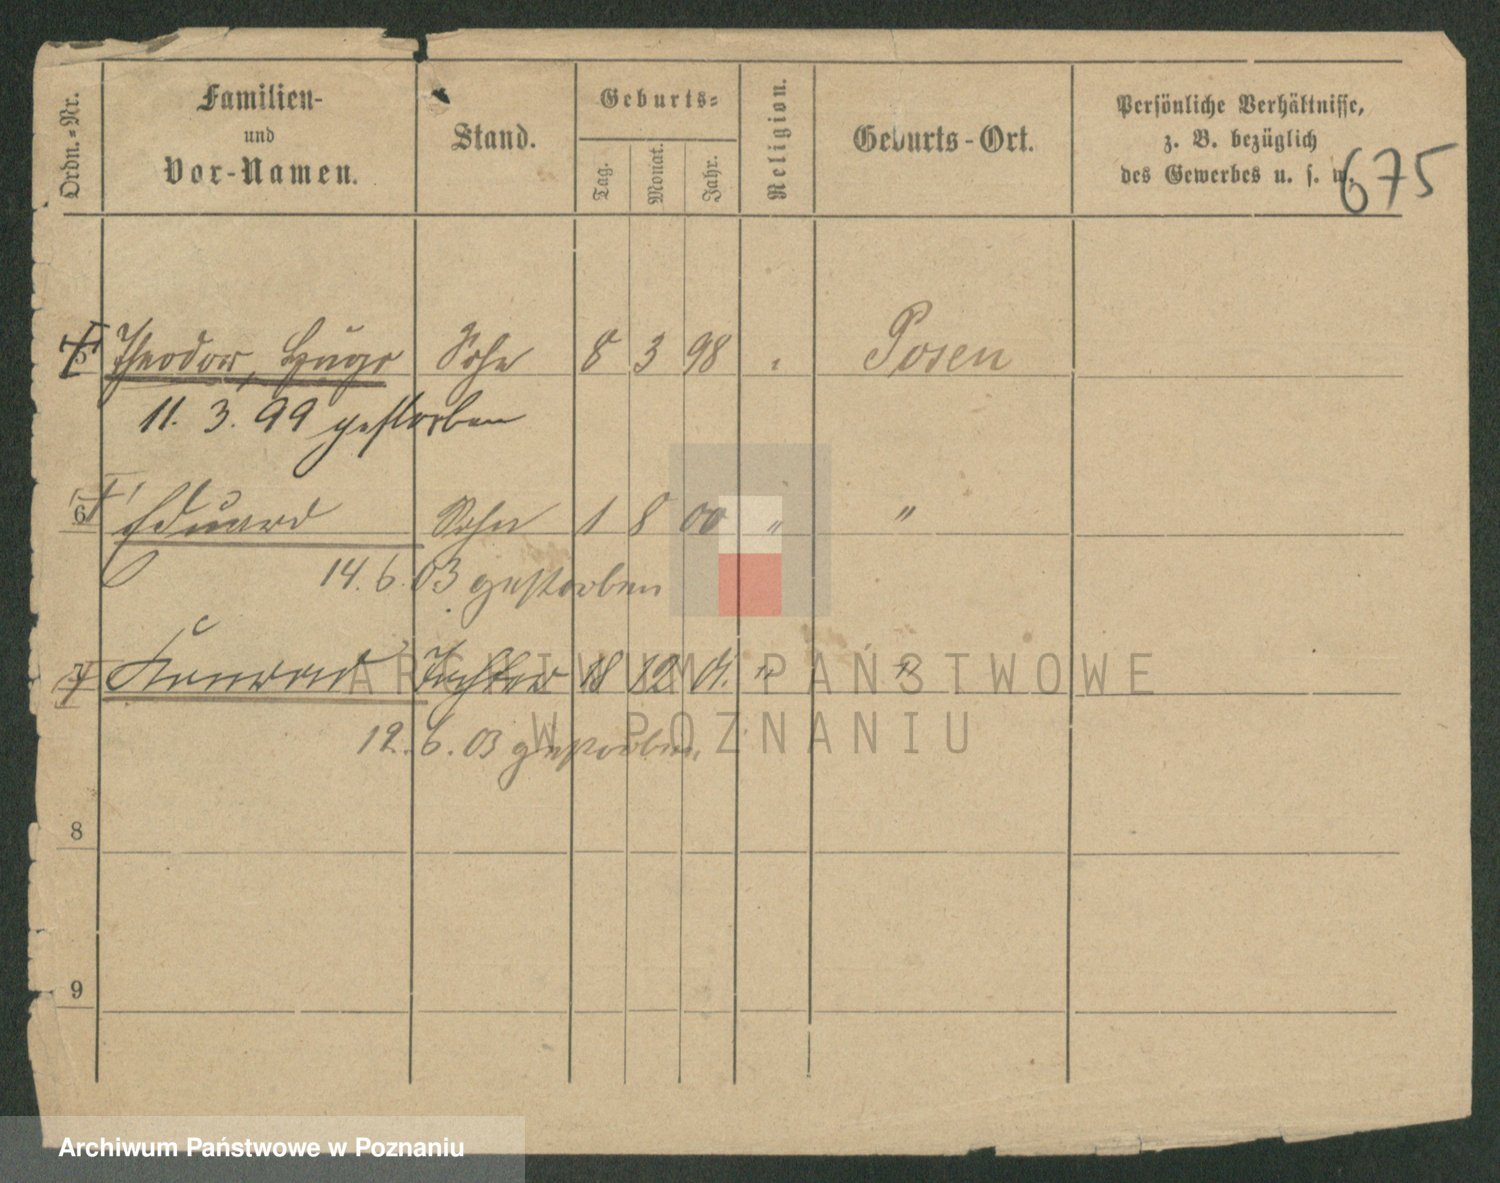 Ordn.-Nr.
Familien-
und
Vor-Namen.
Stand.
Geburts-
Tag.
Monat.
Jahr.
Religion.
Geburts-Ort.
Persönliche Verhältnisse,
z. B. bezüglich
des Gewerbes u. s. w.
675
5 Theodor, Hugo Sohn 8 3 98 " Posen
11. 3. 99 gestorben
6 Eduard Sohn 1 8 00 " "
14. 6. 03 gestorben
7 Tochter 18 12 01. " "
12. 6. 03 gestorben.
8
9
ARCHIWUM PAŃSTWOWE
W POZNANIU
Archiwum Państwowe w Poznaniu